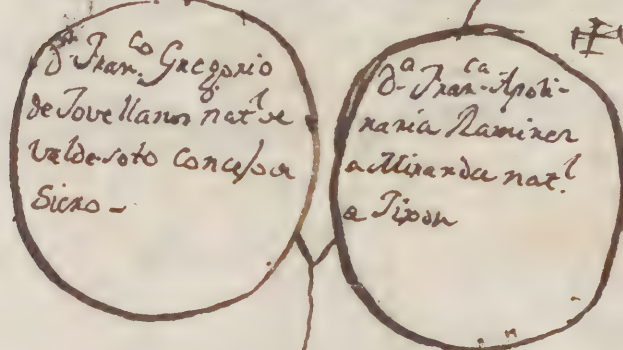 Dn Franco Gregorio
de Jovellanos natl de
Valdesoto concejo de
Siero-
Da Franca Apoli-
naria Ramirez
de Miranda natl
de Jixon